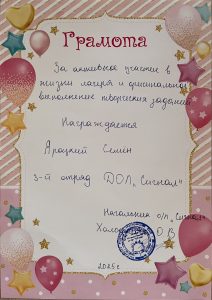 Грамота
За активное участие в
жизни лагеря и оригинальное
выполнение творческих заданий
Награждается
Яроцкий Семен
3-й отряд ДОЛ „Сигнал"
Начальник о/л „Сигнал"
О.В
2025 г